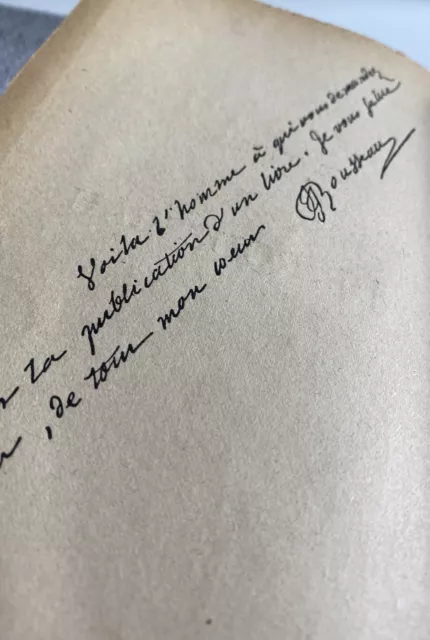 Voila l'homme à qui vous demandez
la publication d'un livre. Je vous
, de tout mon coeur Rousseau